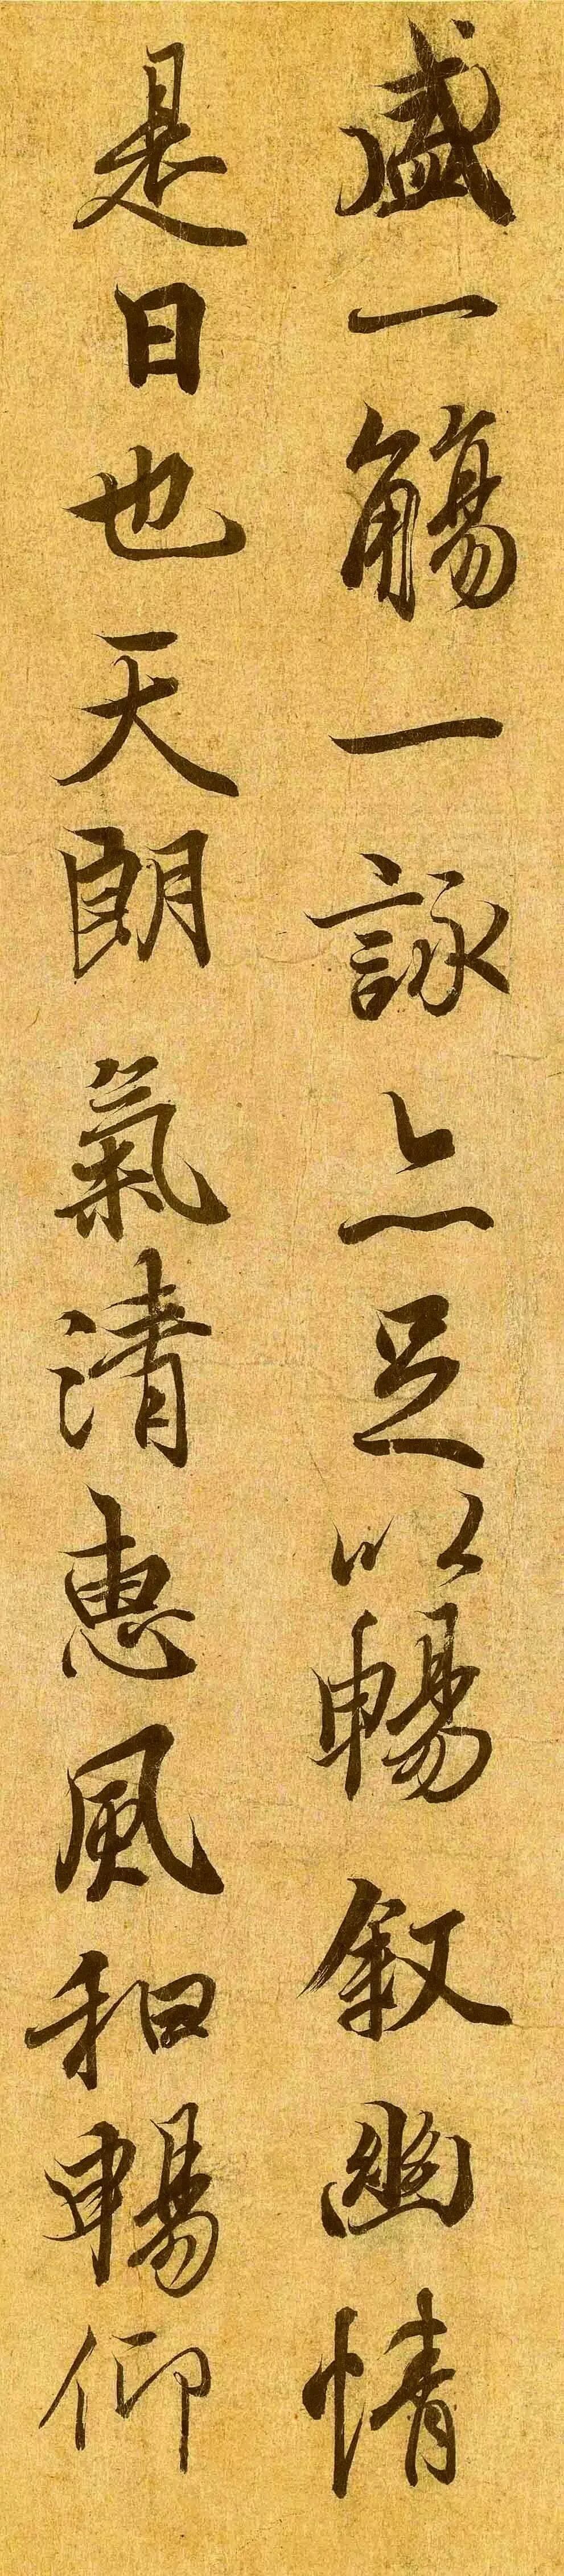 盛一觴一詠亦足以暢叙幽情
是日也天朗氣清惠風和暢仰